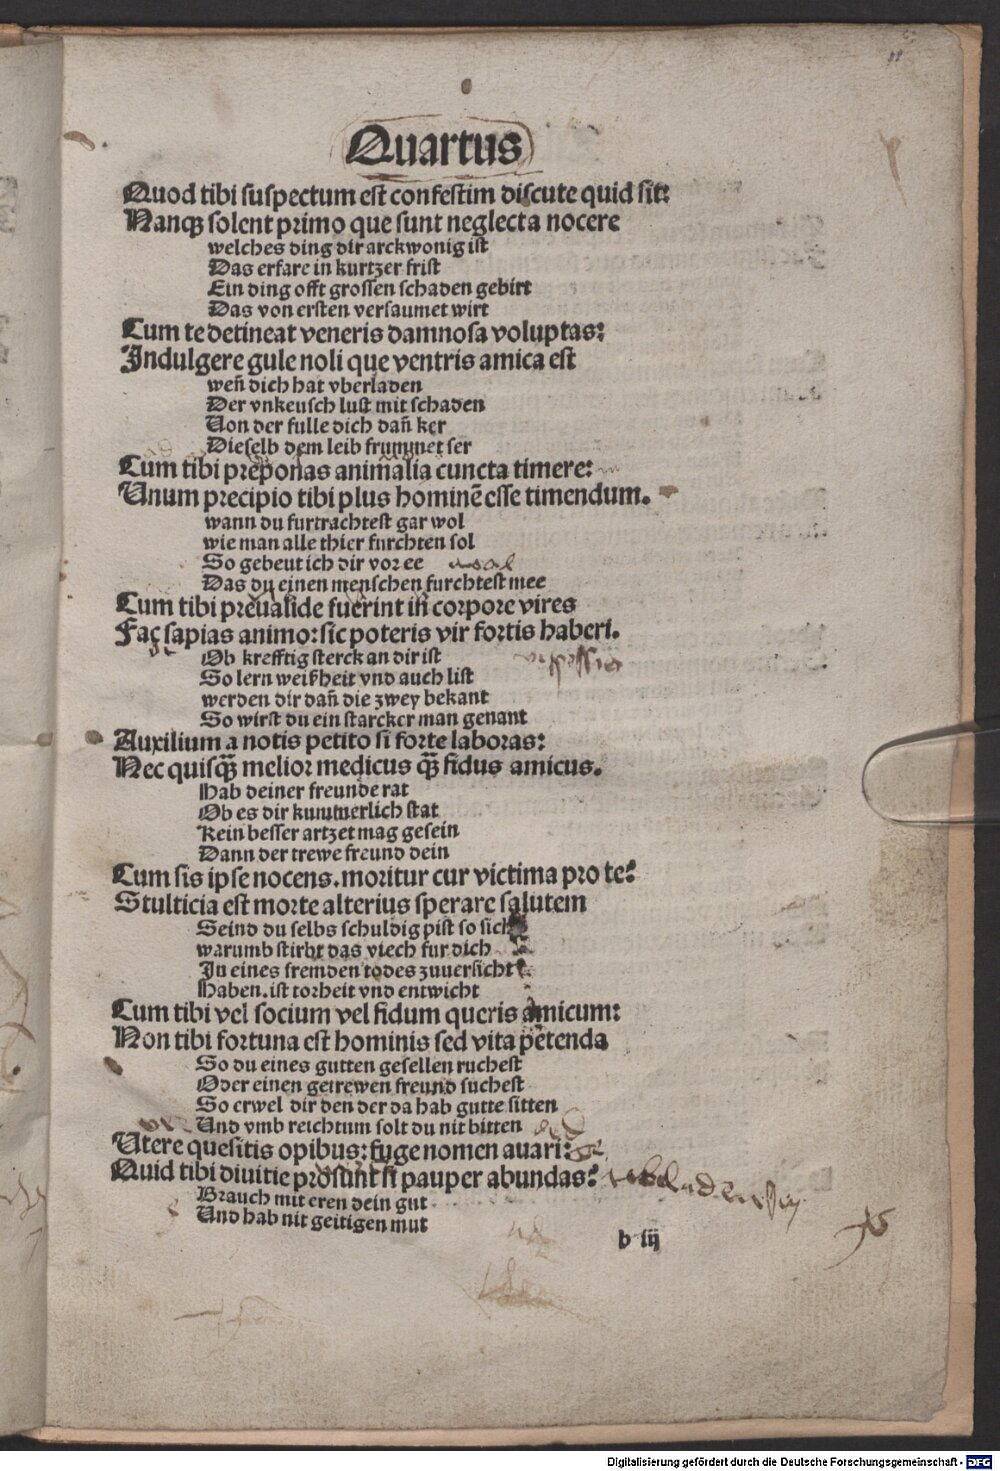 Quartus
Quod tibi suspectum est confestim discute quid sit:
Nanqꝫ solent primo que sunt neglecta nocere
welches ding dir arckwonig ist
Das erfare in kurtzer frist
Ein ding offt grossen schaden gebirt
Das von ersten versaumet wirt
Cum te detineat veneris damnosa voluptas:
Indulgere gule noli que ventris amica est
weñ dich hat vberladen
Der vnkeusch lust mit schaden
Von der fulle dich dañ ker
Dieselb dem leib frummet ser
Cum tibi preponas animalia cuncta timere:
Unum precipio tibi plus hominē esse timendum.
wann du furtrachtest gar wol
wie man alle thier furchten sol
So gebeut ich dir vor ee
Das du einen menschen furchtest mee
Cum tibi preualide fuerint in corpore vires
Fac sapias animo: sic poteris vir fortis haberi.
Ob krefftig sterck an dir ist
So lern weißheit vnd auch list
werden dir dañ die zwey bekant
So wirst du ein starcker man genant
Auxilium a notis petito si forte laboras:
Nec quisq̄ melior medicus q̄ fidus amicus.
Hab deiner freunde rat
Ob es dir kummerlich stat
Kein besser artzet mag gesein
Dann der trewe freund dein
Cum sis ipse nocens. moritur cur victima pro te:
Stulticia est morte alterius sperare salutem
Seind du selbs schuldig pist so sich
warumb stirbt das viech fur dich
In eines fremden todes zuuersicht
Haben. ist torheit vnd entwicht
Cum tibi vel socium vel fidum queris amicum:
Non tibi fortuna est hominis sed vita petenda
So du eines gutten gesellen ruchest
Oder einen getrewen freund suchest
So erwel dir den der da hab gutte sitten
Und vmb reichtum solt du nit bitten
Utere quesitis opibus: fuge nomen auari:
Quid tibi diuitie prosunt si pauper abundas:
Brauch mit eren dein gut
Und hab nit geitigen mut
b iij
Digitalisierung gefördert durch die Deutsche Forschungsgemeinschaft - DFG